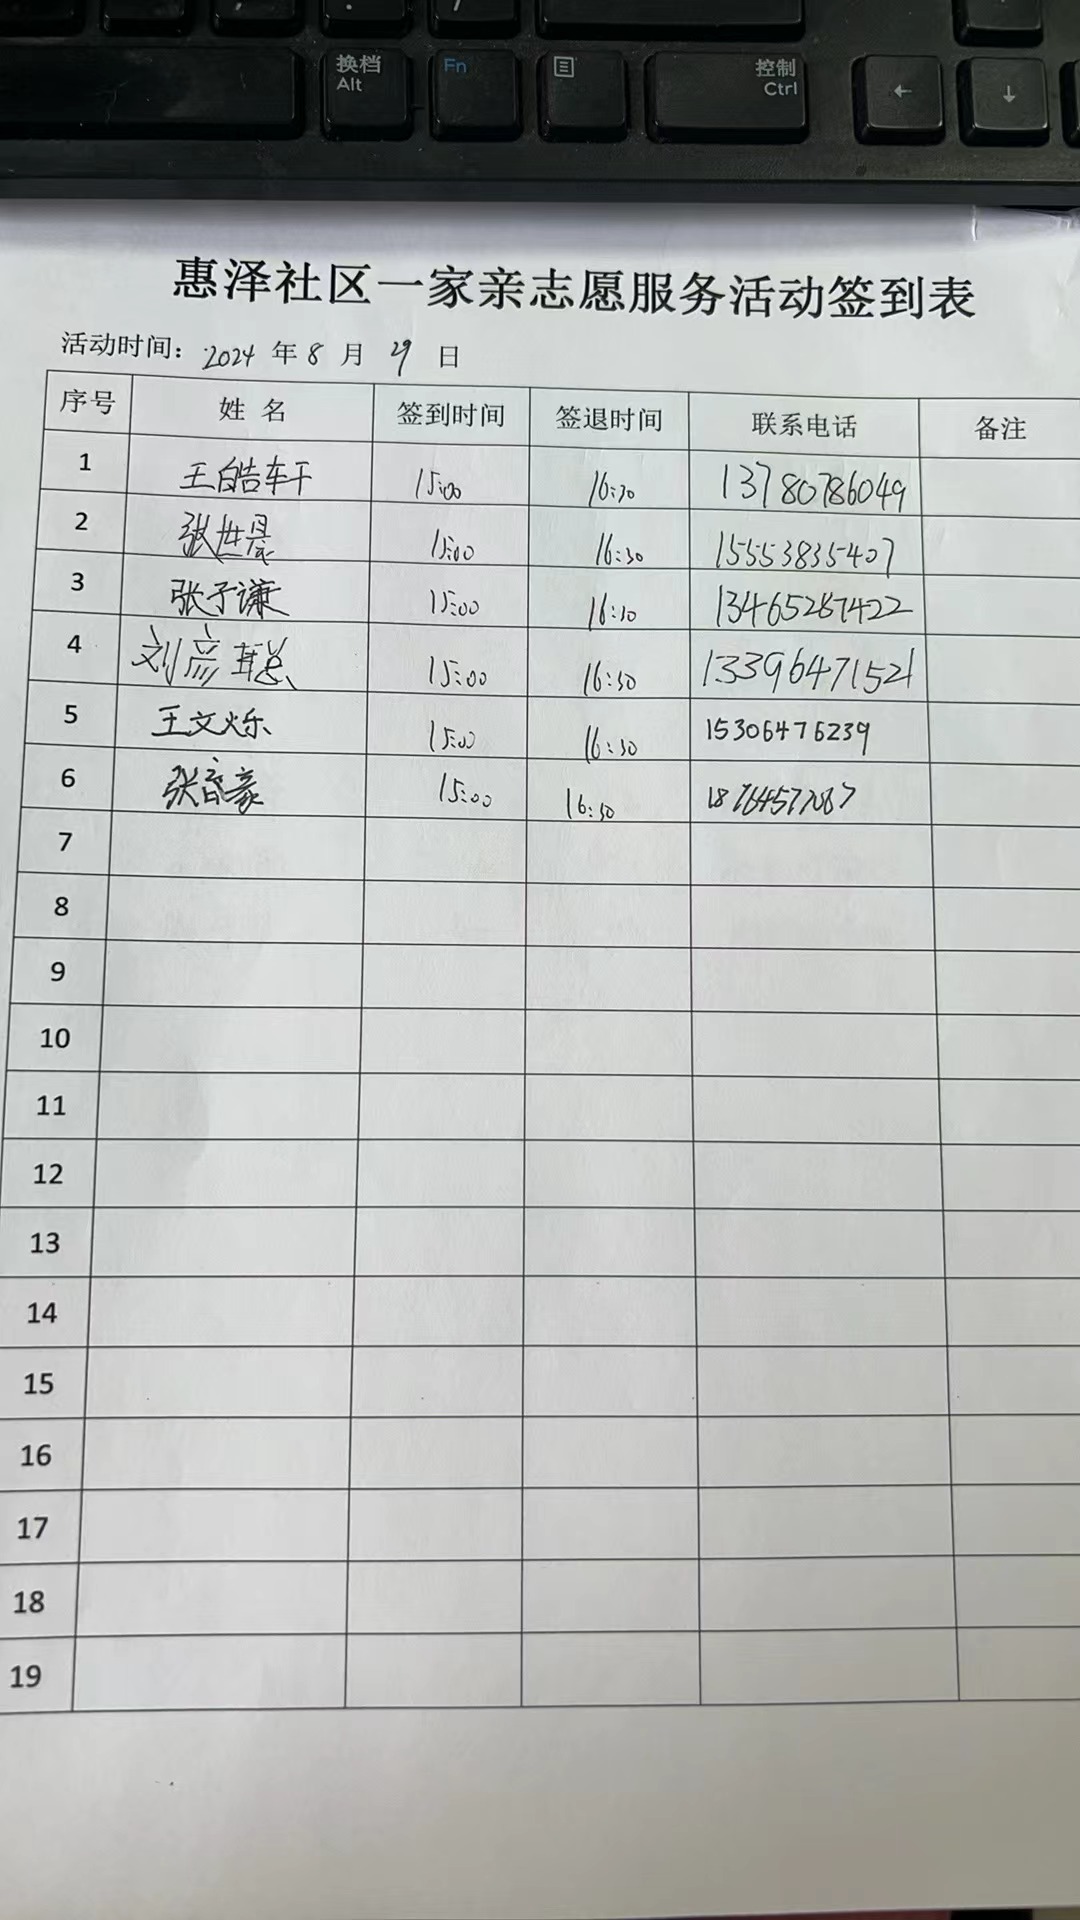 换档
Alt
Fn
控制
Ctrl
← ↓
惠泽社区一家亲志愿服务活动签到表
活动时间: 2024 年 8 月 29 日
序号 姓 名 签到时间 签退时间 联系电话 备注
1 王皓轩 15:00 16:30 13780786049
2 张世晟 15:00 16:30 15553835407
3 张子谦 15:00 16:30 13465287422
4 刘彦聪 15:00 16:30 13396471521
5 王文烁 15:00 16:30 15306476239
6 15:00 16:30
7
8
9
10
11
12
13
14
15
16
17
18
19